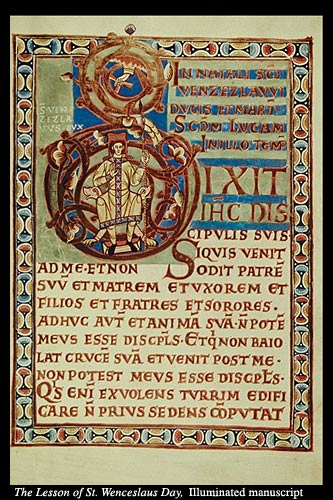 S VEN
ZIZLA
VVS DVX
IN NATALI SC̄I
VENZEZLAVVI
DVCIS ET MART̄
SC̄DM LVCAM
IN ILLO TEMP̄
DIXIT
IH̄C DIS
CIPVLIS SVIS
SIQVIS VENIT
AD ME·ET NON ODIT PATRĒ
SVV̄ ET MATREM ET VXOREM ET
FILIOS ET FRATRES ET SORORES·
ADHVC AVT̄ ET ANIMĀ SVĀ·N̄ POTĒ
MEVS ESSE DISCPL̄S·ET Q̄ N̄ BAIO
LAT CRVCĒ SVĀ ET VENIT POST ME·
NON POTEST MEVS ESSE DISCPL̄S·
Q̄S ENĪ EX VOLENS TVRRIM EDIFI
CARE N̄ PRIVS SEDENS COPVTAT
The Lesson of St. Wenceslaus Day, Illuminated manuscript